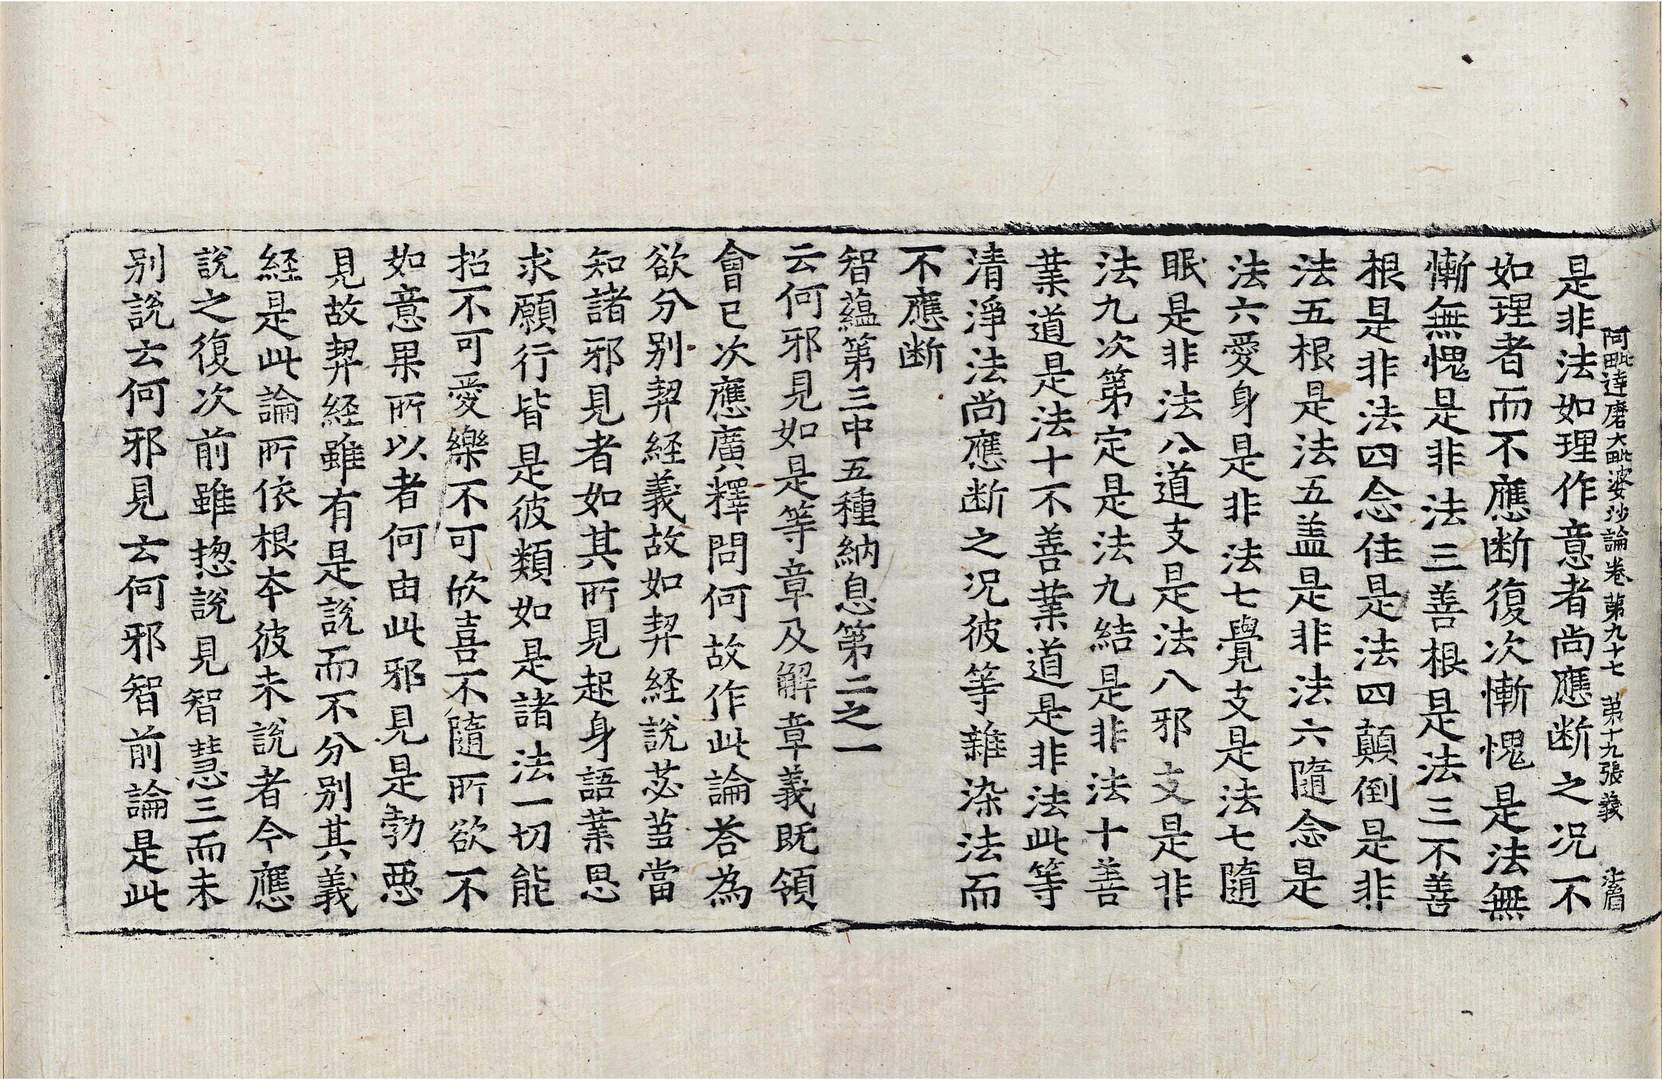 阿毗達磨大毗婆沙論卷第九十七　第十九張　義
是非法如理作意者尚應断之况不
如理者而不應断復次慚愧是法無
慚無愧是非法三善根是法三不善
根是非法四念住是法四顛倒是非
法五根是法五盖是非法六隨念是
法六愛身是非法七覺支是法七隨
眠是非法八道支是法八邪支是非
法九次第定是法九結是非法十善
業道是法十不善業道是非法此等
清淨法尚應断之况彼等雜染法而
不應断
智蘊第三中五種納息第二之一
云何邪見如是等章及解章義既領
會已次應廣釋問何故作此論荅為
欲分别契経義故如契経說苾蒭當
知諸邪見者如其所見起身語業思
求願行皆是彼類如是諸法一切能
招不可愛樂不可欣喜不隨所欲不
如意果所以者何由此邪見是勃惡
見故契経雖有是說而不分别其義
経是此論所依根本彼未說者今應
說之復次前雖揔說見智慧三而未
别說云何邪見云何邪智前論是此